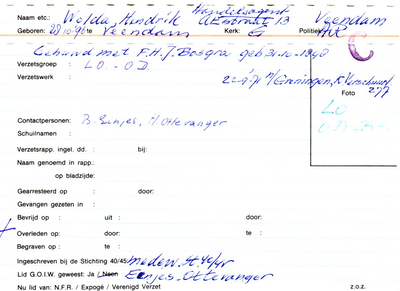 Handelsagent
Naam etc.: Wolda, Hindrik AE straat 13 Veendam
Geboren: te Veendam Kerk: G Politiek:
Gehuwd met F.H.J. Bosgra geb 31-10-1890
Verzetsgroep : L.O. - O.D.
Verzetswerk : n/Groningen, K. Verschuurl
Foto
LO
Contactpersonen: B. Eenjes, H Otteranger
Schuilnamen :
Verzetsrapp. ingel. dd. : bij:
Naam genoemd in rapp.:
op bladzijde:
Gearresteerd op : door:
Gevangen gezeten in :
Bevrijd op : uit : door:
Overleden op: door: te:
Begraven op : te:
Ingeschreven bij de Stichting 40/45: medew. St. 40/45
Lid G.O.I.W. geweest: Ja / Neen Eenjes. Otteranger
Nu lid van: N.F.R. / Expogé / Verenigd Verzet z.o.z.